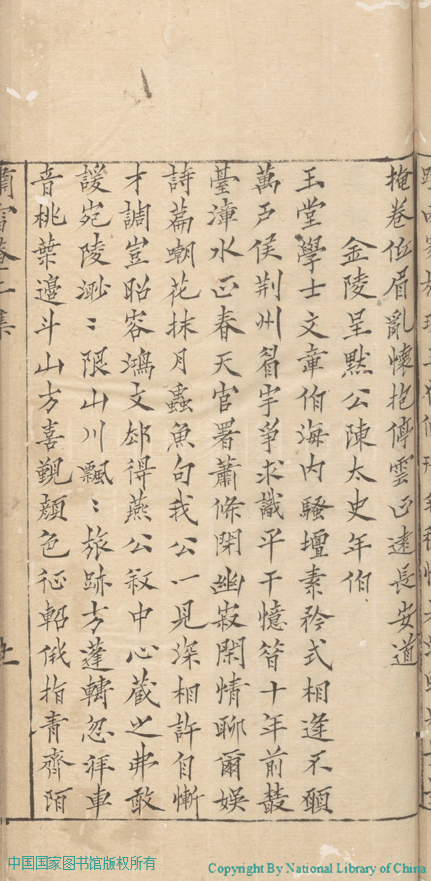 掩卷低眉亂懷抱停雲正遠長安道
金陵呈默公陳太史年伯
玉堂學士文章伯海內騷壇素矜式相逢不願
萬戶侯荆州眉宇爭求識平干憶昔十年前叢
臺漳水正春天官署蕭條閉幽寂閑情聊爾娛
詩篇嘲花抹月蠹魚句我公一見深相許自慚
才調豈昭容鴻文却得燕公叙中心藏之弗敢
諼宛陵渺〻限山川飄〻旅跡方蓬轉忽拜車
音桃葉邊斗山方喜覿顏色征軺俄指青齊陌
中国国家图书馆版权所有
Copyright By National Library of China